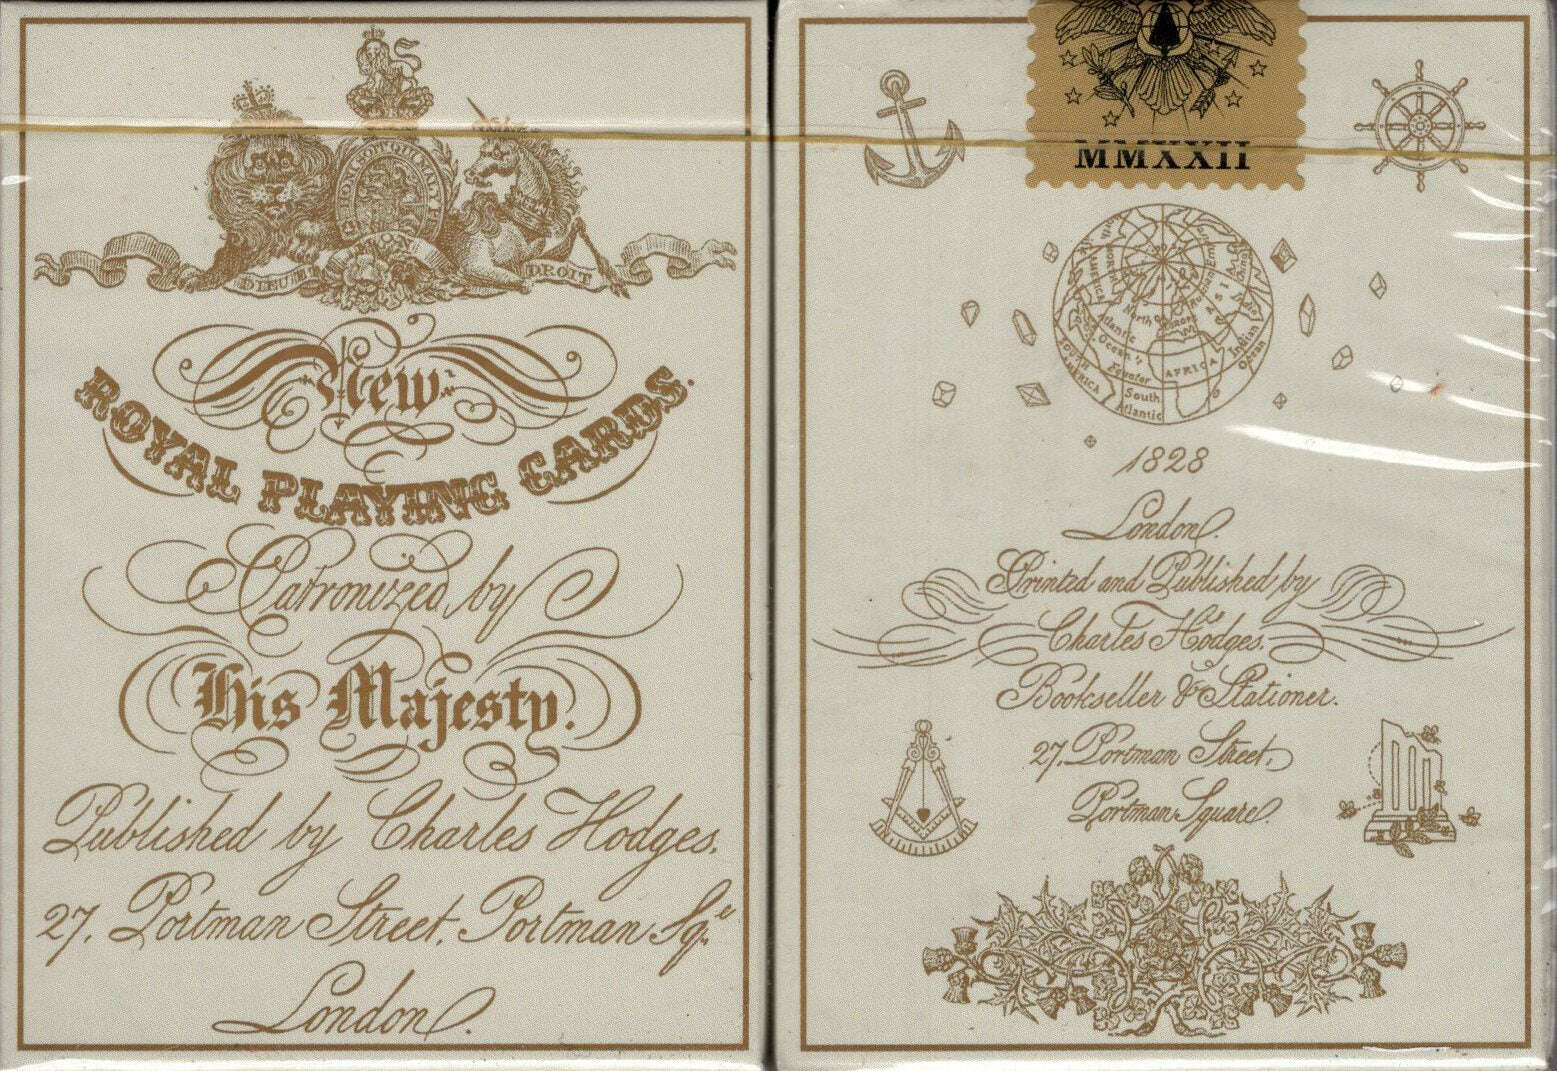 HONI SOIT QUI MAL Y
DIEU ET DROIT
New
ROYAL PLAYING CARDS.
Patronized by
His Majesty.
Published by Charles Hodges,
27, Portman Street, Portman Sqe.
London.
MMXXII
North
Atlantic
Ocean
Equator
AFRICA
Indian
Ocean
South
Atlantic
1828
London.
Printed and Published by
Charles Hodges.
Bookseller & Stationer.
27, Portman Street,
Portman Square.